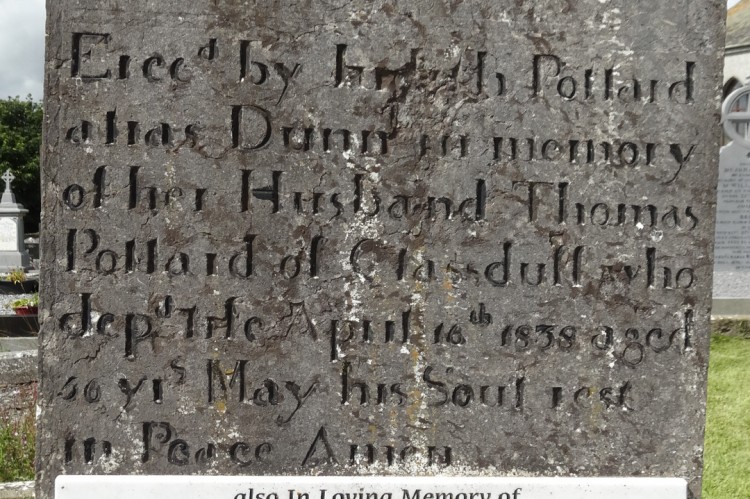 Erecᵈ by Judith Pollard
alias Dunn in memory
of her Husband Thomas
Pollard of Glassduff who
depᵈ life April 16ᵗʰ 1838 aged
yrˢ May his Soul rest
in Peace Amen
also In Loving Memory of